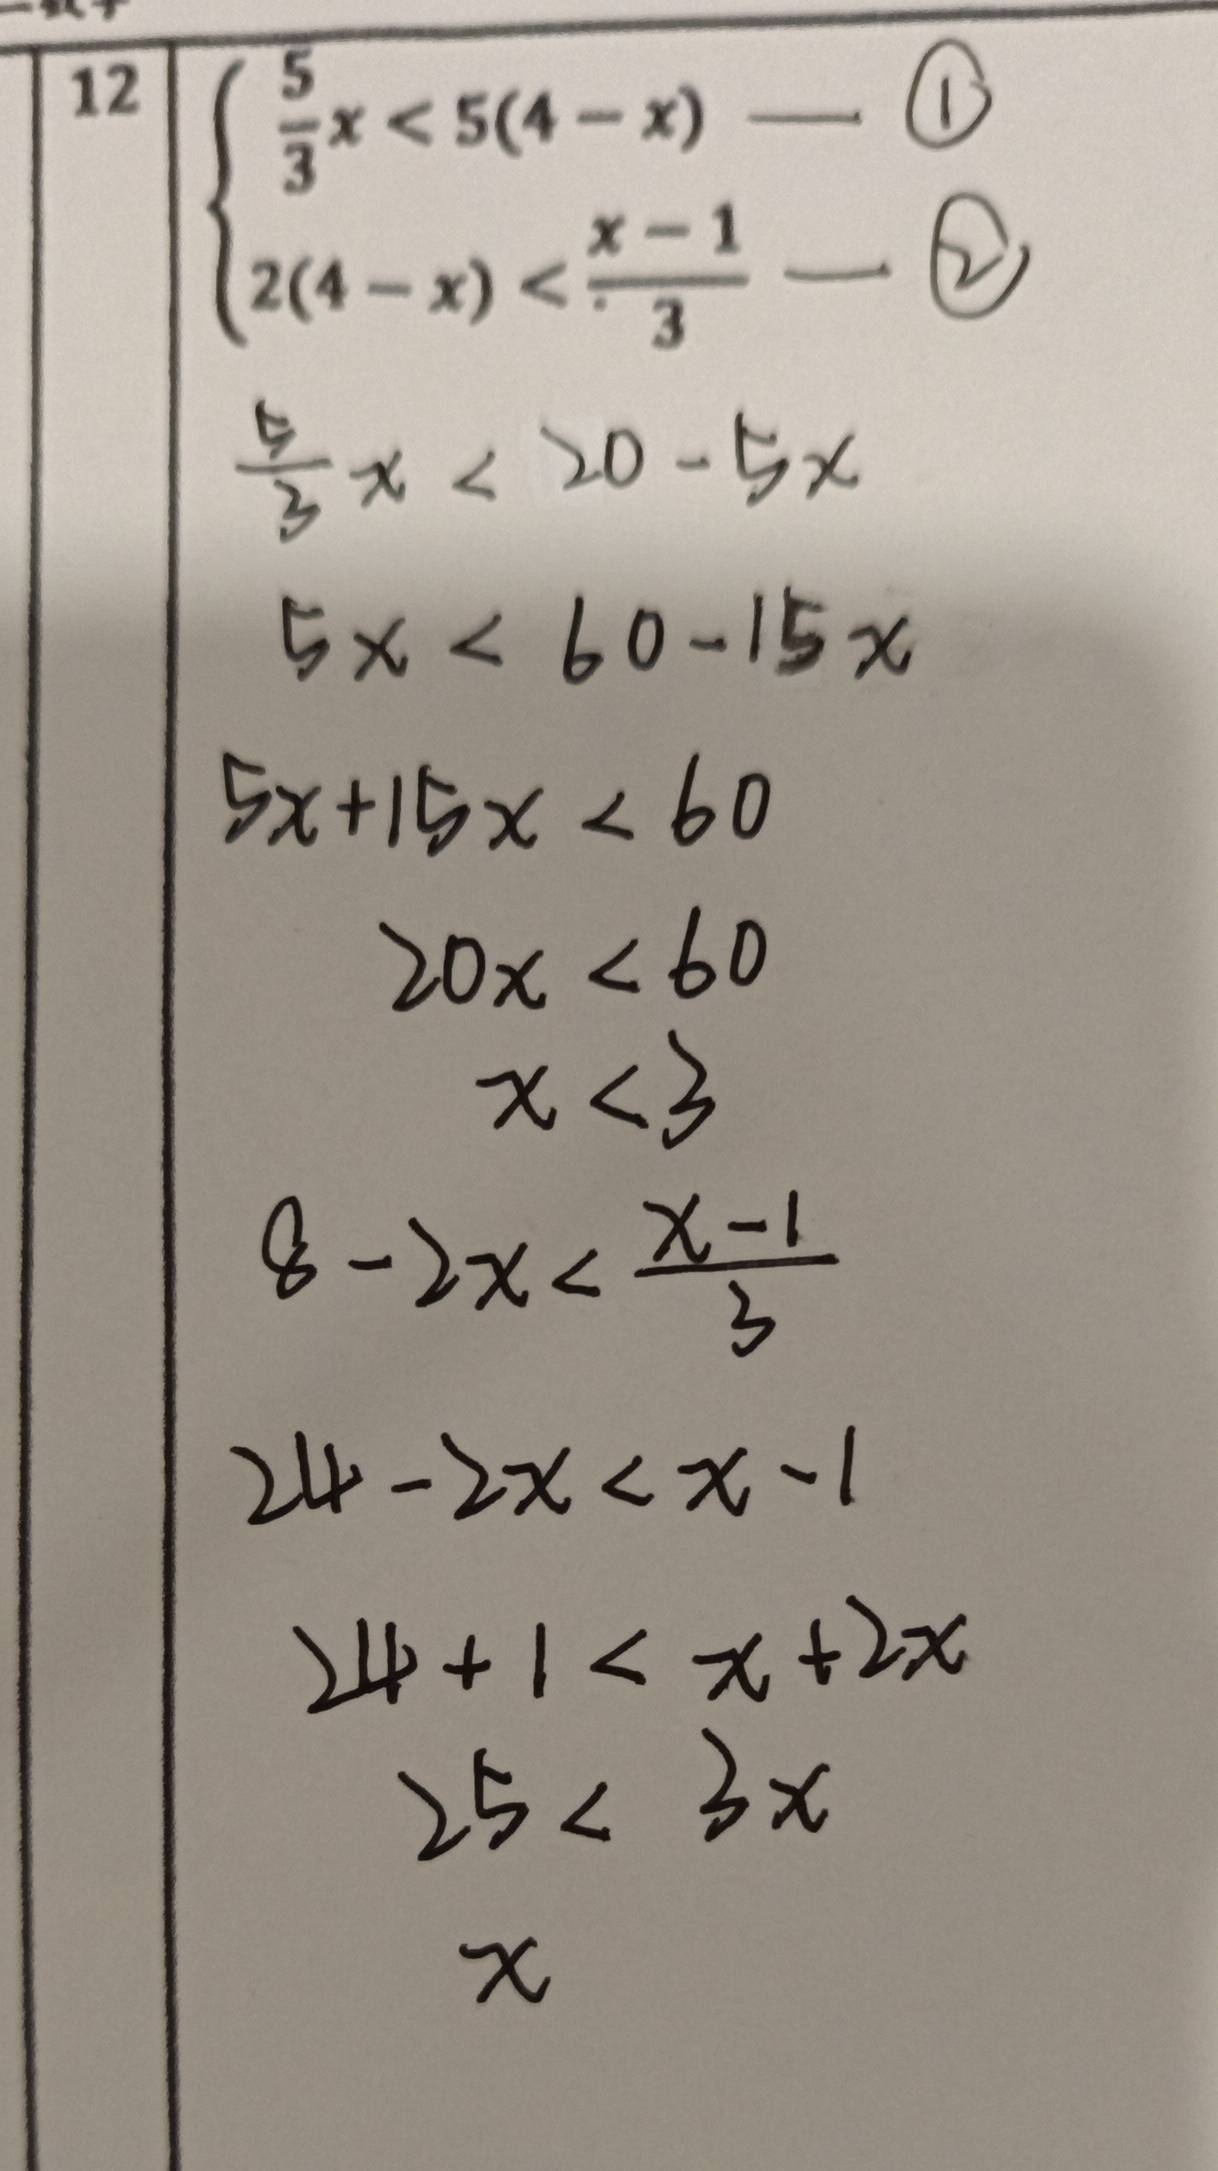 12
5/3 x < 5(4 − x) — ①
2(4 − x) < (x − 1)/3 — ②
5/3 x < 20 - 5x
5x < 60 - 15x
5x + 15x < 60
20x < 60
x < 3
8 - 2x < (x - 1)/3
24 - 2x < x - 1
24 + 1 < x + 2x
25 < 3x
x